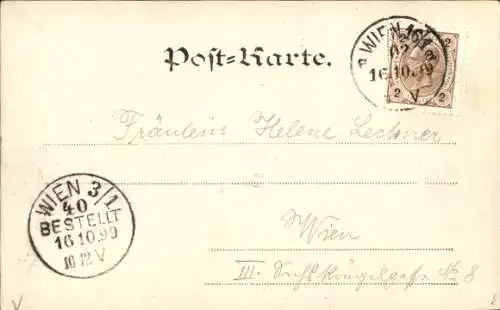 Post=Karte.
WIEN 16/1
16.10.99
V
2 2
2 2
Fräulein Helene Lechner
WIEN 3/1
40
BESTELLT
16.10.99
10-12 V
Wien
III. Sechskrügelgasse No 8